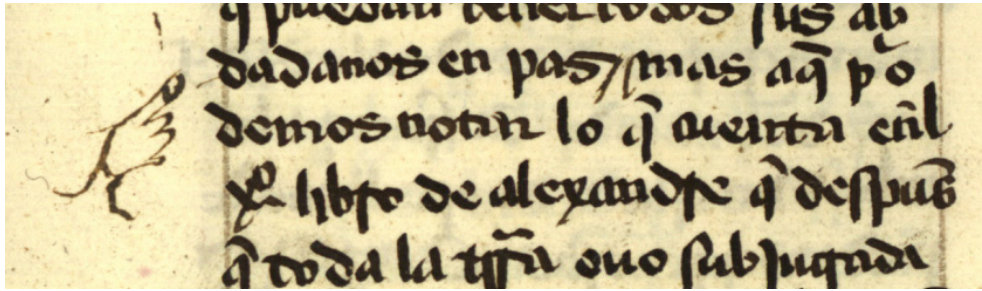 q̃ puedan tener todos sus çib
dadanos en pas / mas aq̃ po
demos notar lo q̃ cuenta eñl
xº libro de alexandre q̃ despues
q̃ toda la trr̃a ouo subjugada